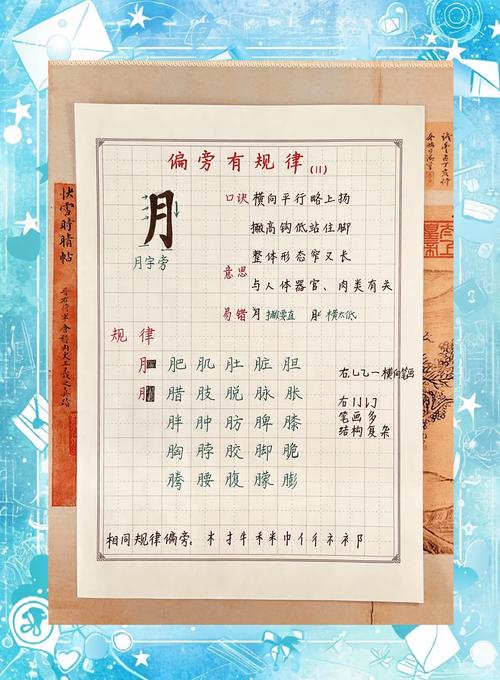 偏旁有规律(11)
月
月字旁
口诀 横向平行略上扬
撇高钩低站住脚
整体形态窄又长
意思 与人体器官、肉类有关
易错 月 撇要直 月 横太低
规律
月 肥肌肚脏胆
腊肢脱脉胀
月 胖肿肪脾膝
胸脖胶脚脆
腾腰腹朦膨
右乚乙一横向笔画
右亅丨亅
笔画多
结构复杂
相同规律偏旁: 木扌牛禾米巾亻彳礻衤阝
快雪时晴帖